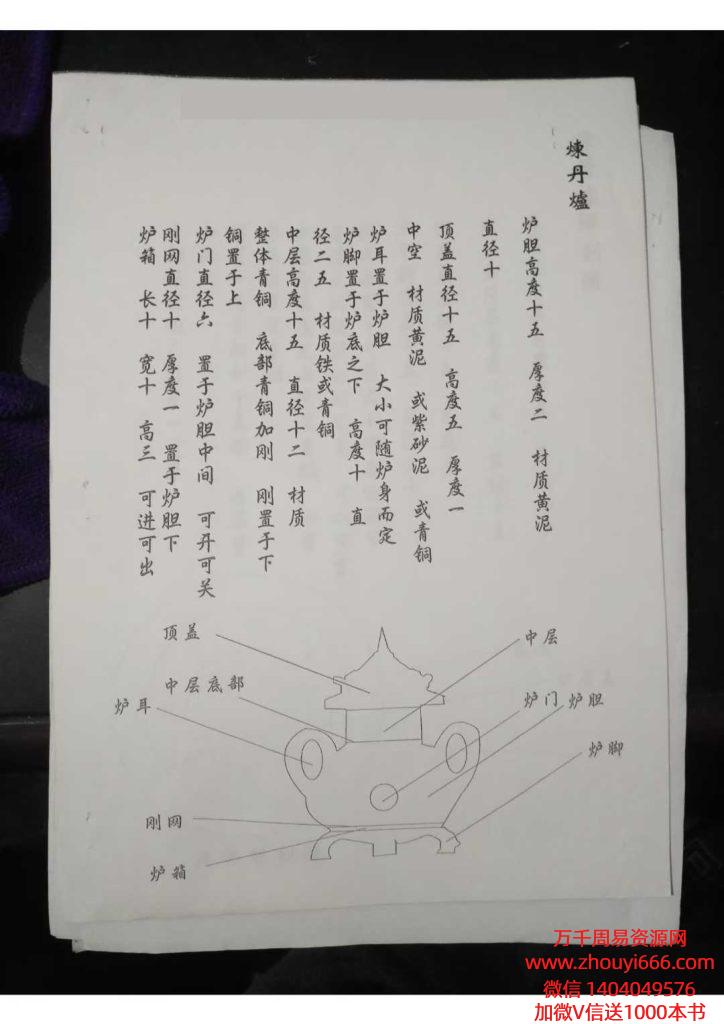 煉丹爐
炉胆高度十五 厚度二 材质黄泥
直径十
顶盖直径十五 高度五 厚度一
中空 材质黄泥 或紫砂泥 或青铜
炉耳置于炉胆 大小可随炉身而定
炉脚置于炉底之下 高度十 直
径二五 材质铁或青铜
中层高度十五 直径十二 材质
整体青铜 底部青铜加刚 刚置于下
铜置于上
炉门直径六 置于炉胆中间 可开可关
刚网直径十 厚度一 置于炉胆下
炉箱 长十 宽十 高三 可进可出
顶盖
中层
中层底部
炉耳
炉门
炉胆
炉脚
刚网
炉箱
万千周易资源网
www.zhouyi666.com
微信 1404049576
加微V信送1000本书